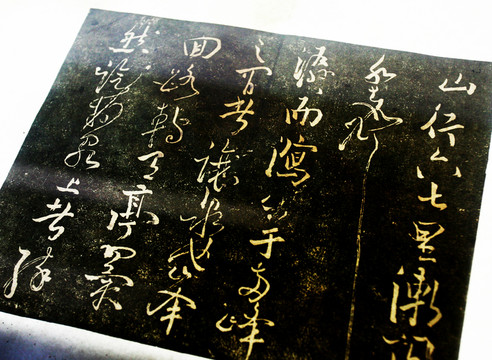 山行六七里漸聞
水聲
潺潺而瀉出于兩峰
之間者讓泉也峯
回路轉有亭翼
然臨於泉上者醉